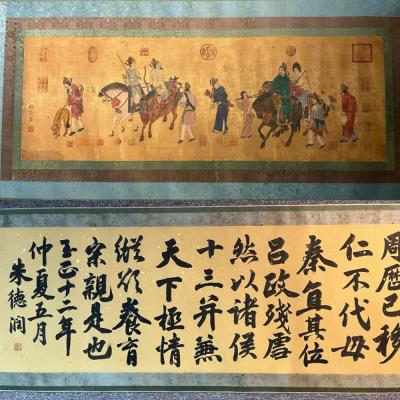 周歷已移
仁不代母
秦直其位
吕政殘虐
然以諸侯
十三并兼
天下極情
縱欲養育
宗親是也
至正十二年
仲夏五月
朱德润